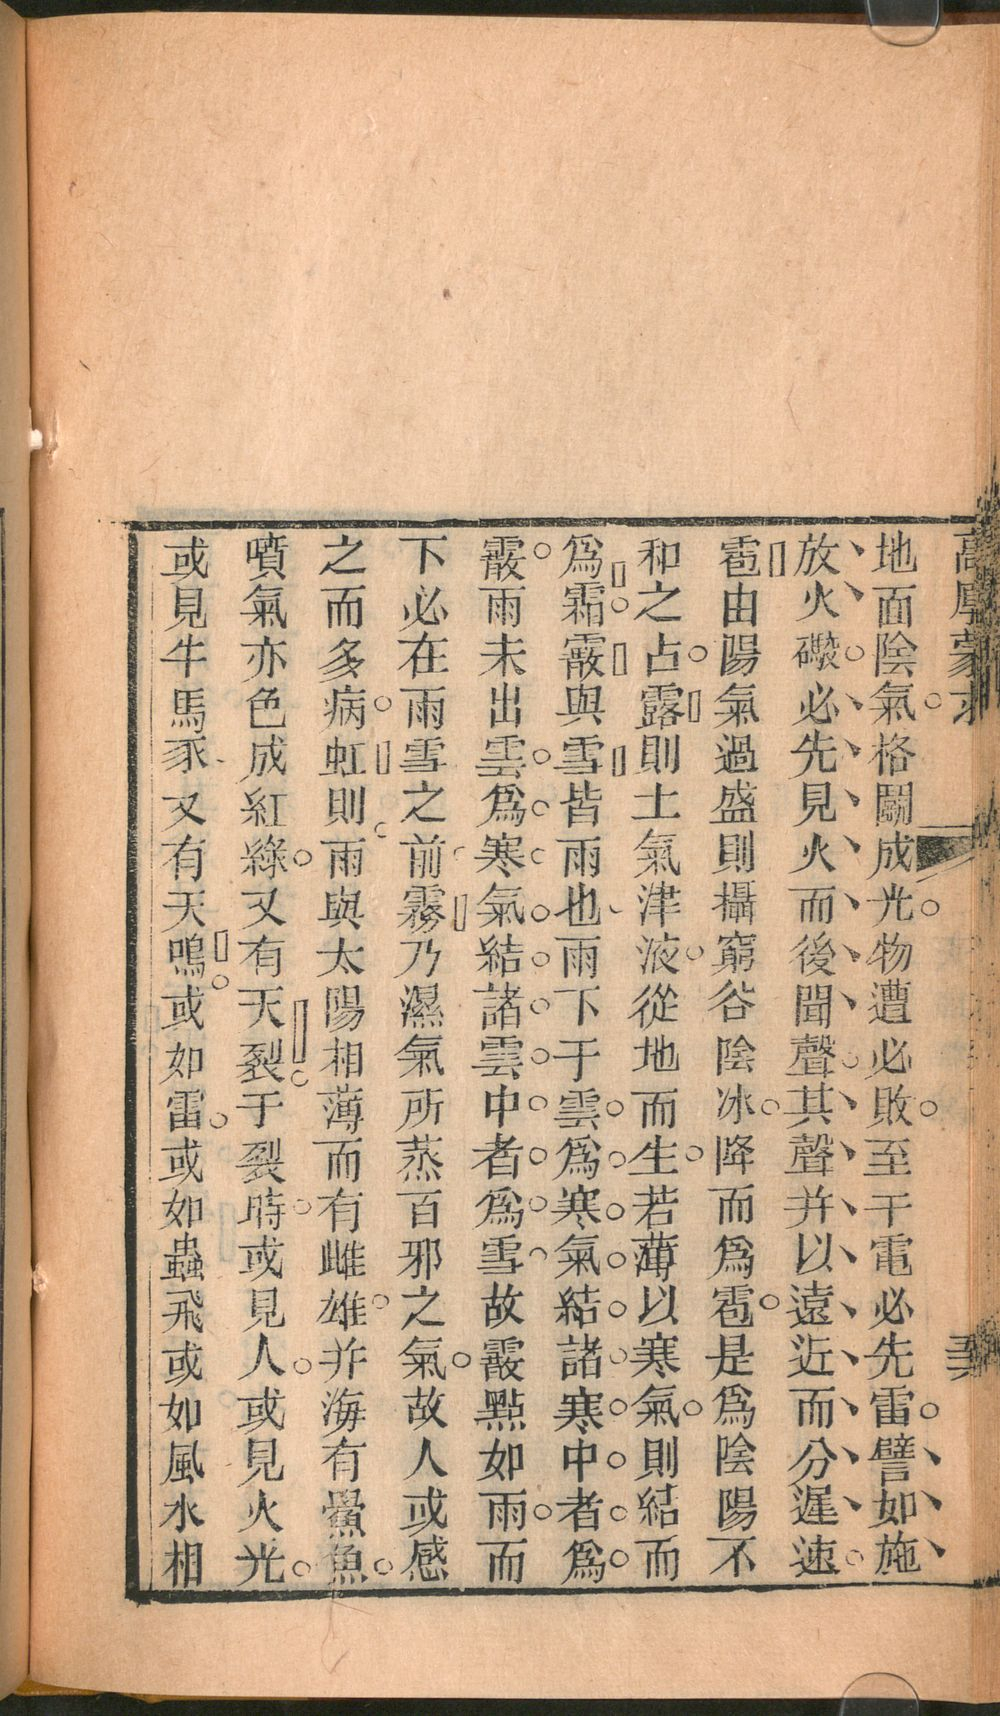 高厚蒙求
地面陰氣格鬭成光物遭必敗至于電必先雷譬如施
放火礮必先見火而後聞聲其聲并以遠近而分遲速
雹由陽氣過盛則攝窮谷陰冰降而爲雹是爲陰陽不
和之占露則土氣津液從地而生若薄以寒氣則結而
爲霜霰與雪皆雨也雨下于雲爲寒氣結諸寒中者爲
霰雨未出雲爲寒氣結諸雲中者爲雪故霰點如雨而
下必在雨雪之前霧乃濕氣所蒸百邪之氣故人或感
之而多病虹則雨與太陽相薄而有雌雄并海有鱟魚
噴氣亦色成紅綠又有天裂于裂時或見人或見火光
或見牛馬豕又有天鳴或如雷或如蟲飛或如風水相